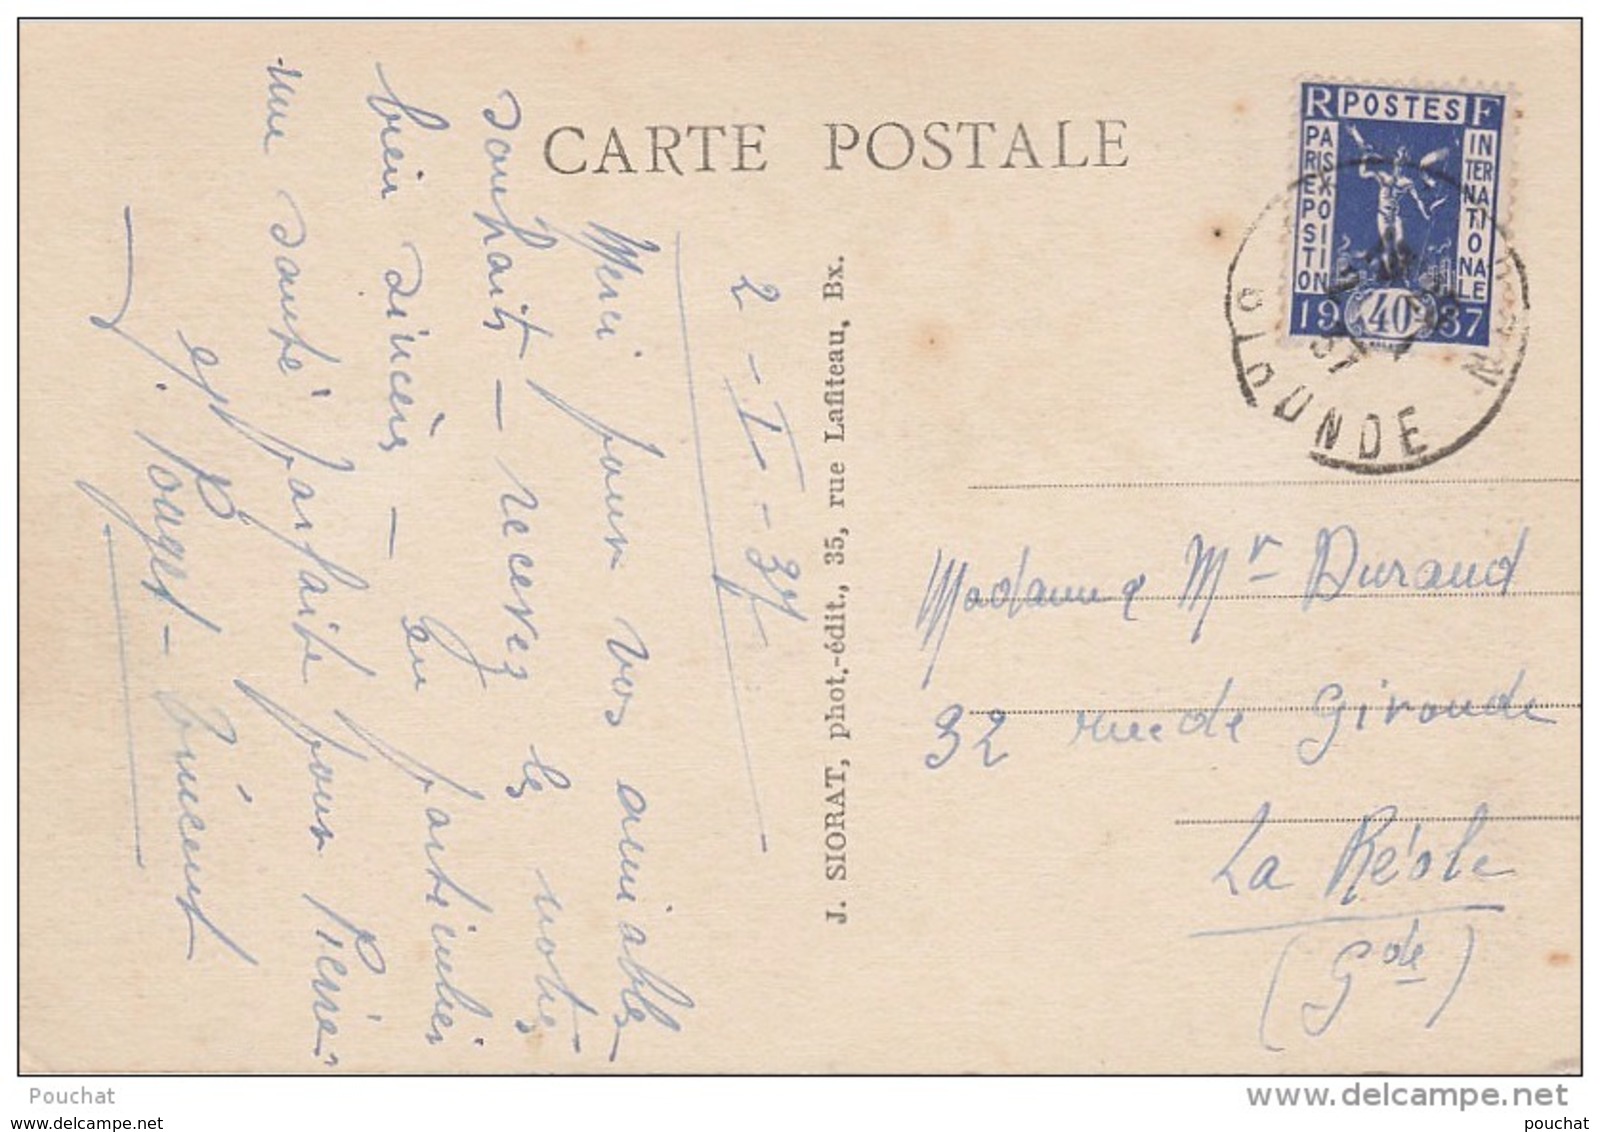 CARTE POSTALE
2 - I - 37
Merci pour vos aimables
souhaits - recevez les notres
bien sincères - en particulier
une santé parfaite pour Pierre
et Roger - Vincent
J. SIORAT, phot.-édit., 35, rue Lafiteau, Bx.
R POSTES F
PARIS EXPOSITION
INTERNATIONALE
1937
40
GIRONDE
37
Madame Mr Durand
32 rue de Gironde
La Réole
(Gde)
Pouchat
delcampe.net
www.delcampe.net
pouchat